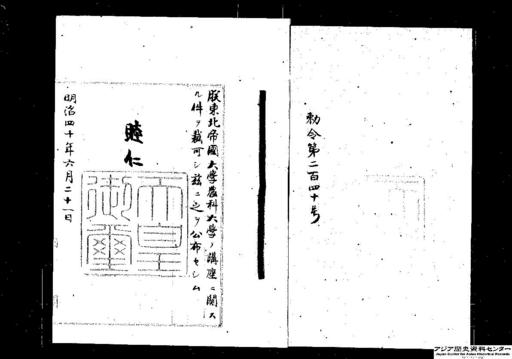 勅令第二百四十号
朕東北帝國大学農科大学ノ講座ニ関ス
ル件ヲ裁可シ茲ニ之ヲ公布セシム
睦仁
天皇
御璽
明治四十年六月二十一日
アジア歴史資料センター
Japan Center for Asian Historical Records